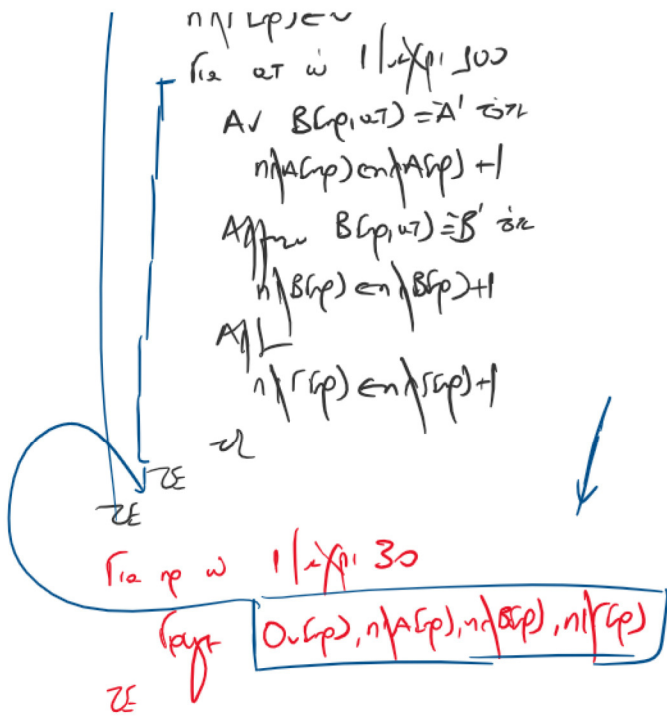 πλΓ[πρ] ← 0
Για απ από 1 μέχρι 100
Αν Β[πρ, απ] = 'Α' τότε
πλΑ[πρ] ← πλΑ[πρ] + 1
Αλλιώς Β[πρ, απ] = 'Β' τότε
πλΒ[πρ] ← πλΒ[πρ] + 1
Αλλ
πλΓ[πρ] ← πλΓ[πρ] + 1
ΤΛ
ΤΕ
ΤΕ
Για πρ από 1 μέχρι 30
Γραψε Ον[πρ], πλΑ[πρ], πλΒ[πρ], πλΓ[πρ]
ΤΕ